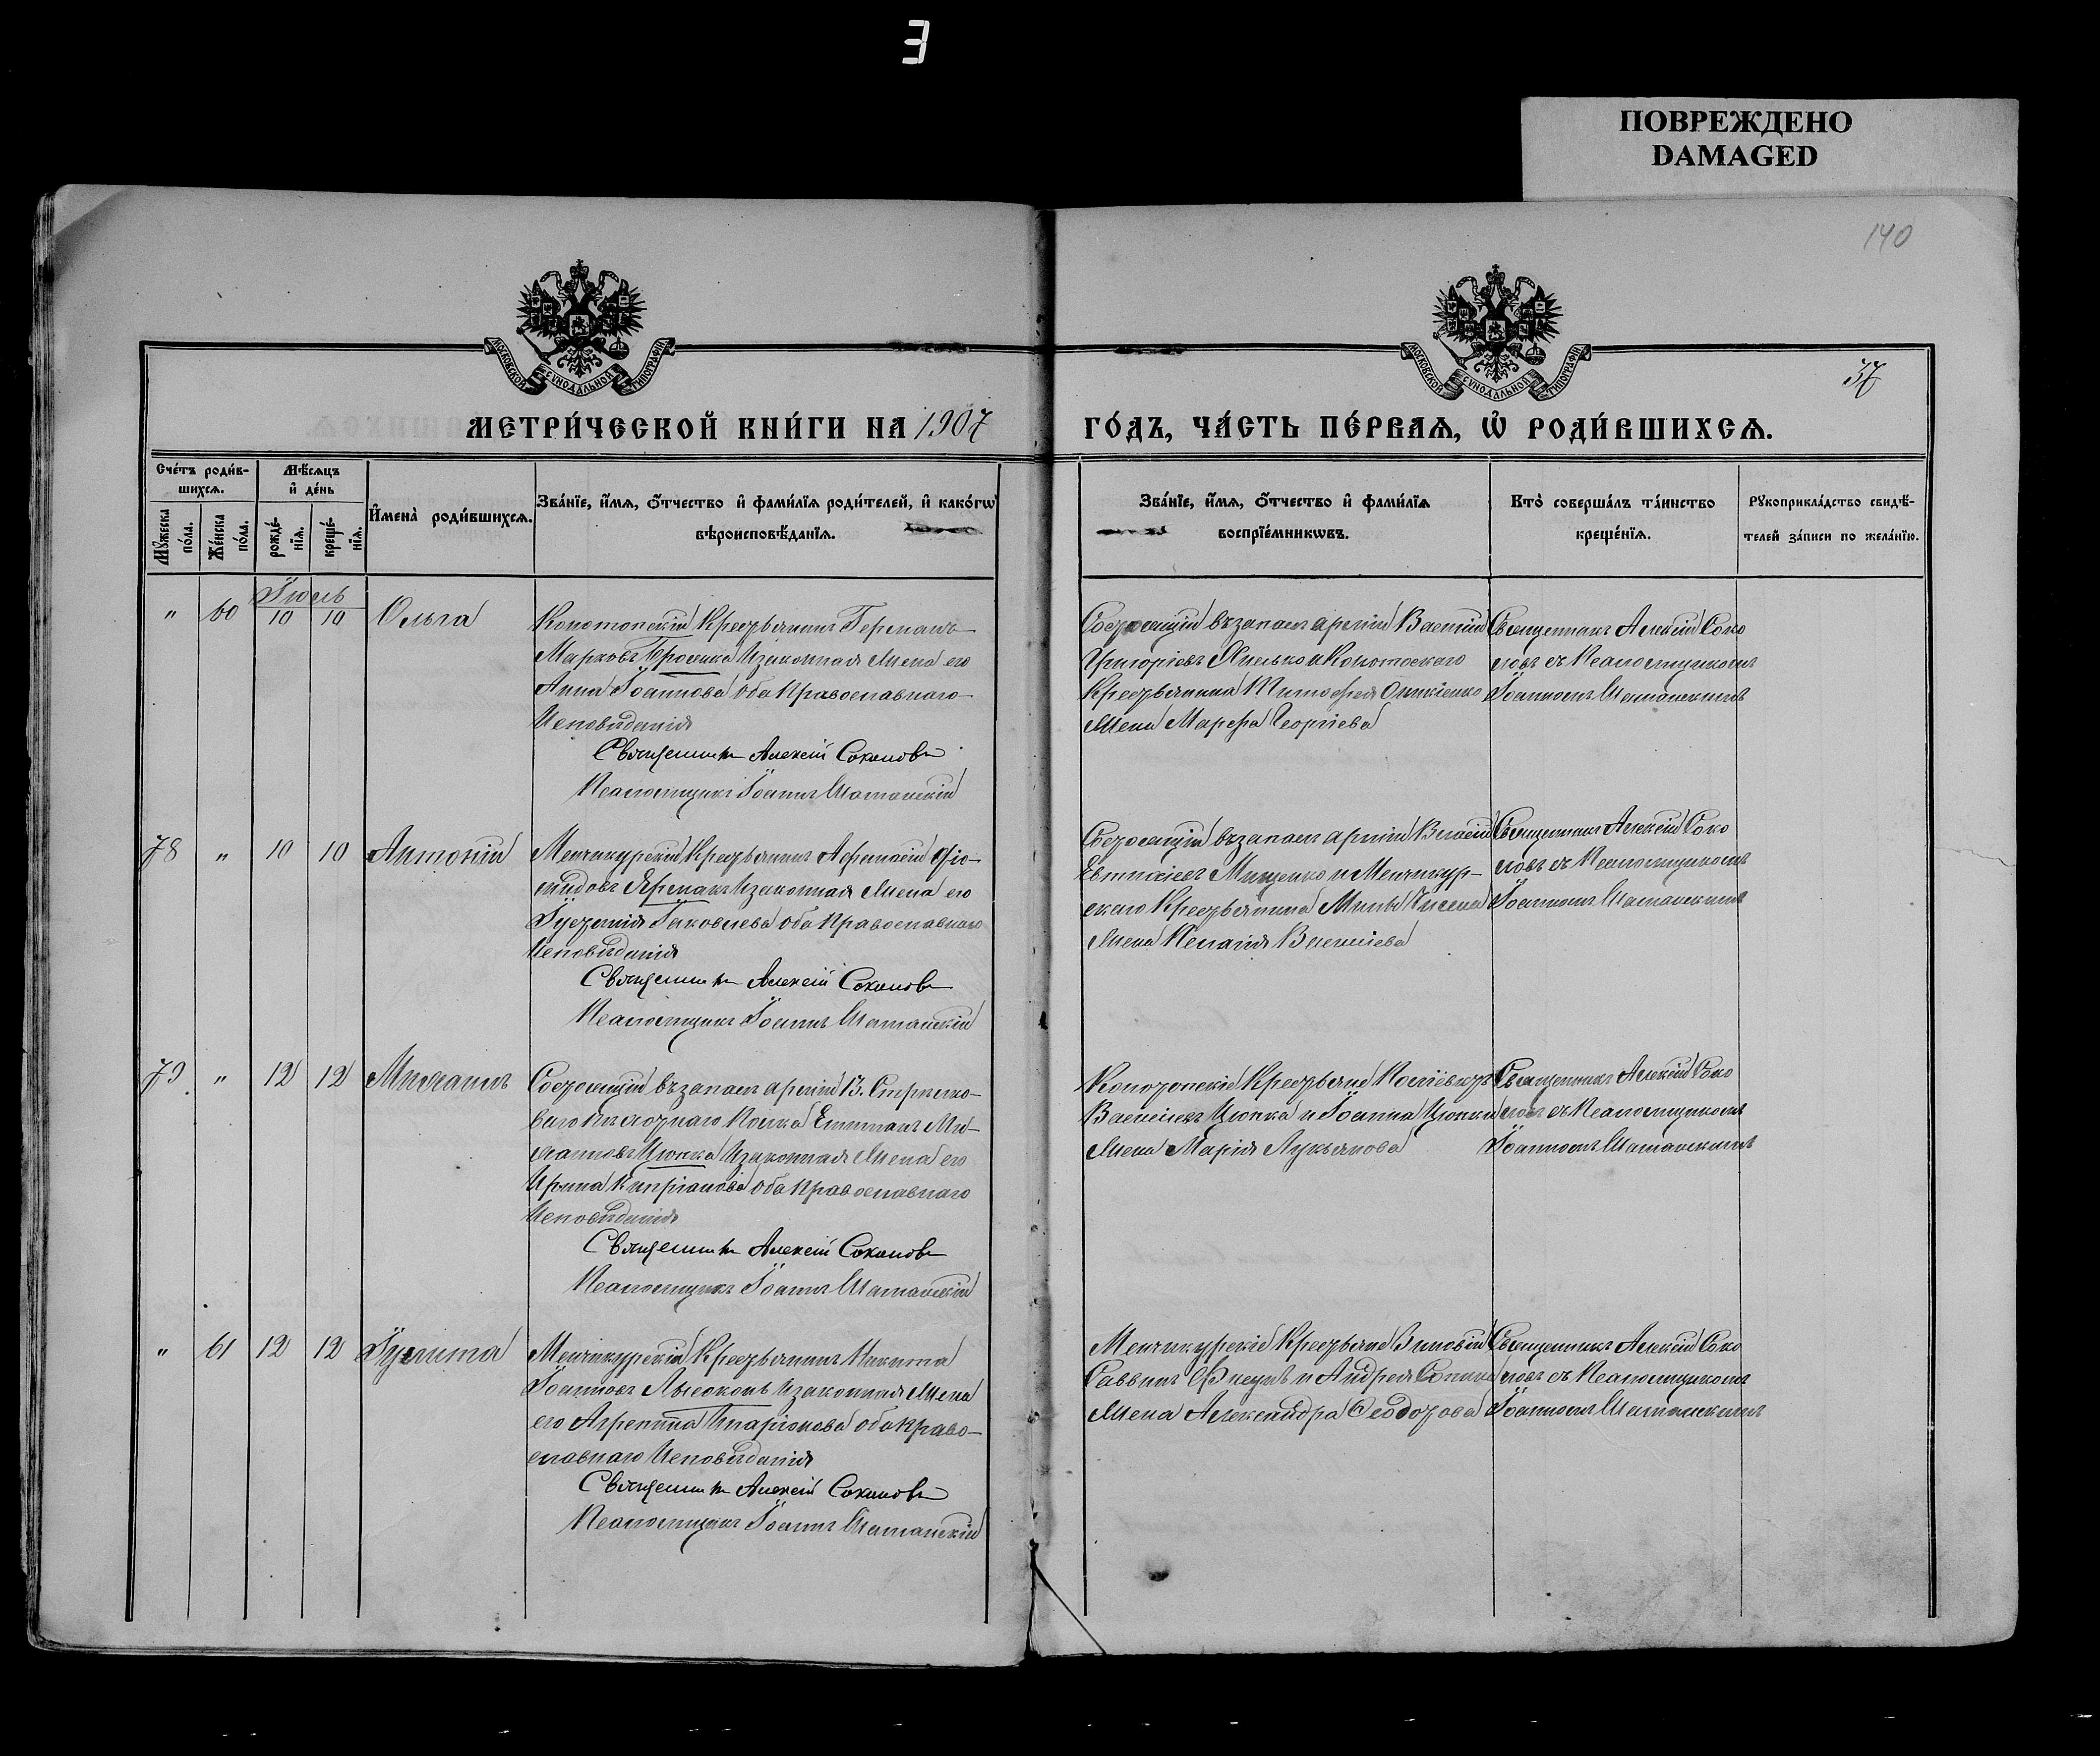 Е
ПОВРЕЖДЕНО
DAMAGED
140
37
МОСКОВСКОЙ СУНОДАЛЬНОЙ ТИПОГРАФІИ
МОСКОВСКОЙ СУНОДАЛЬНОЙ ТИПОГРАФІИ
МЕТРИ́ЧЕСКОЙ КНИ́ГИ НА 1907
ГО́ДЪ, ЧА́СТЬ ПЕ́РВАѦ, Ѡ҆ РОДИ́ВШИХСѦ.
Сче́тъ роди́в-
шихсѧ.
Мꙋжеска
по́ла.
Же́нска
по́ла.
Мѣ́сѧцъ
и҆ де́нь
рожде́-
нїѧ.
креще́-
нїѧ.
И҆мена̀ роди́вшихсѧ.
Зва́нїе, и҆́мѧ, ѻ҆́тчество и҆ фами́лїѧ роди́телей, и҆ како́гѡ
вѣроисповѣ́данїѧ.
Зва́нїе, и҆́мѧ, ѻ҆́тчество и҆ фами́лїѧ
воспрїе́мникѡвъ.
Кто̀ соверша́лъ та́инство
креще́нїѧ.
Рꙋкоприкла́дство свидѣ́-
телей за́писи по жела́нїю.
Іюль
" 60 10 10 Ольга
Конотопскій Крестьянинъ Германъ
Марковъ и законная жена его
Анна Іоаннова оба Православнаго
Исповѣданія
Священникъ Алексій Соколовъ
Псаломщикъ Іоаннъ Шатанскій
Состоящій въ запасѣ арміи
Григоріевъ и Конотопскаго
Крестьянина Тимофея
жена Марфа Георгіева
Священникъ Алексій Соко
ловъ съ Псаломщикомъ
Іоанномъ Шатанскимъ
78 " 10 10 Антоній
Менчикурскій Крестьянинъ Афанасій Діо-
мидовъ Ярмакъ и законная жена его
Іустинія Іаковлева оба Православнаго
Исповѣданія
Священникъ Алексій Соколовъ
Псаломщикъ Іоаннъ Шатанскій
Состоящій въ запасѣ арміи Василій
Мищенко и Менчикур-
скаго Крестьянина Мины
жена Пелагія Васильева
Священникъ Алексій Соко
ловъ съ Псаломщикомъ
Іоанномъ Шатанскимъ
79 " 12 12 Михаилъ
Состоящій въ запасѣ арміи В. Стрѣлко-
ваго пѣхотнаго Полка Ми-
хаиловъ Цюпка и законная жена его
Ирина Кипріанова оба Православнаго
Исповѣданія
Священникъ Алексій Соколовъ
Псаломщикъ Іоаннъ Шатанскій
Конотопскіе Крестьяне
Васильевъ Цюпка и Іоанна Цюпки
жена Марія Лукьянова
Священникъ Алексій Соко
ловъ съ Псаломщикомъ
Іоанномъ Шатанскимъ
" 61 12 12 Іулитта
Менчикурскій Крестьянинъ Никита
Іоанновъ Лысоконь и законная жена
его Агрепина Иларіонова оба Право-
славнаго Исповѣданія
Священникъ Алексій Соколовъ
Псаломщикъ Іоаннъ Шатанскій
Менчикурскіе Крестьяне Зиновій
Саввинъ и Андрея
жена Александра Ѳеодорова
Священникъ Алексій Соко
ловъ съ Псаломщикомъ
Іоанномъ Шатанскимъ